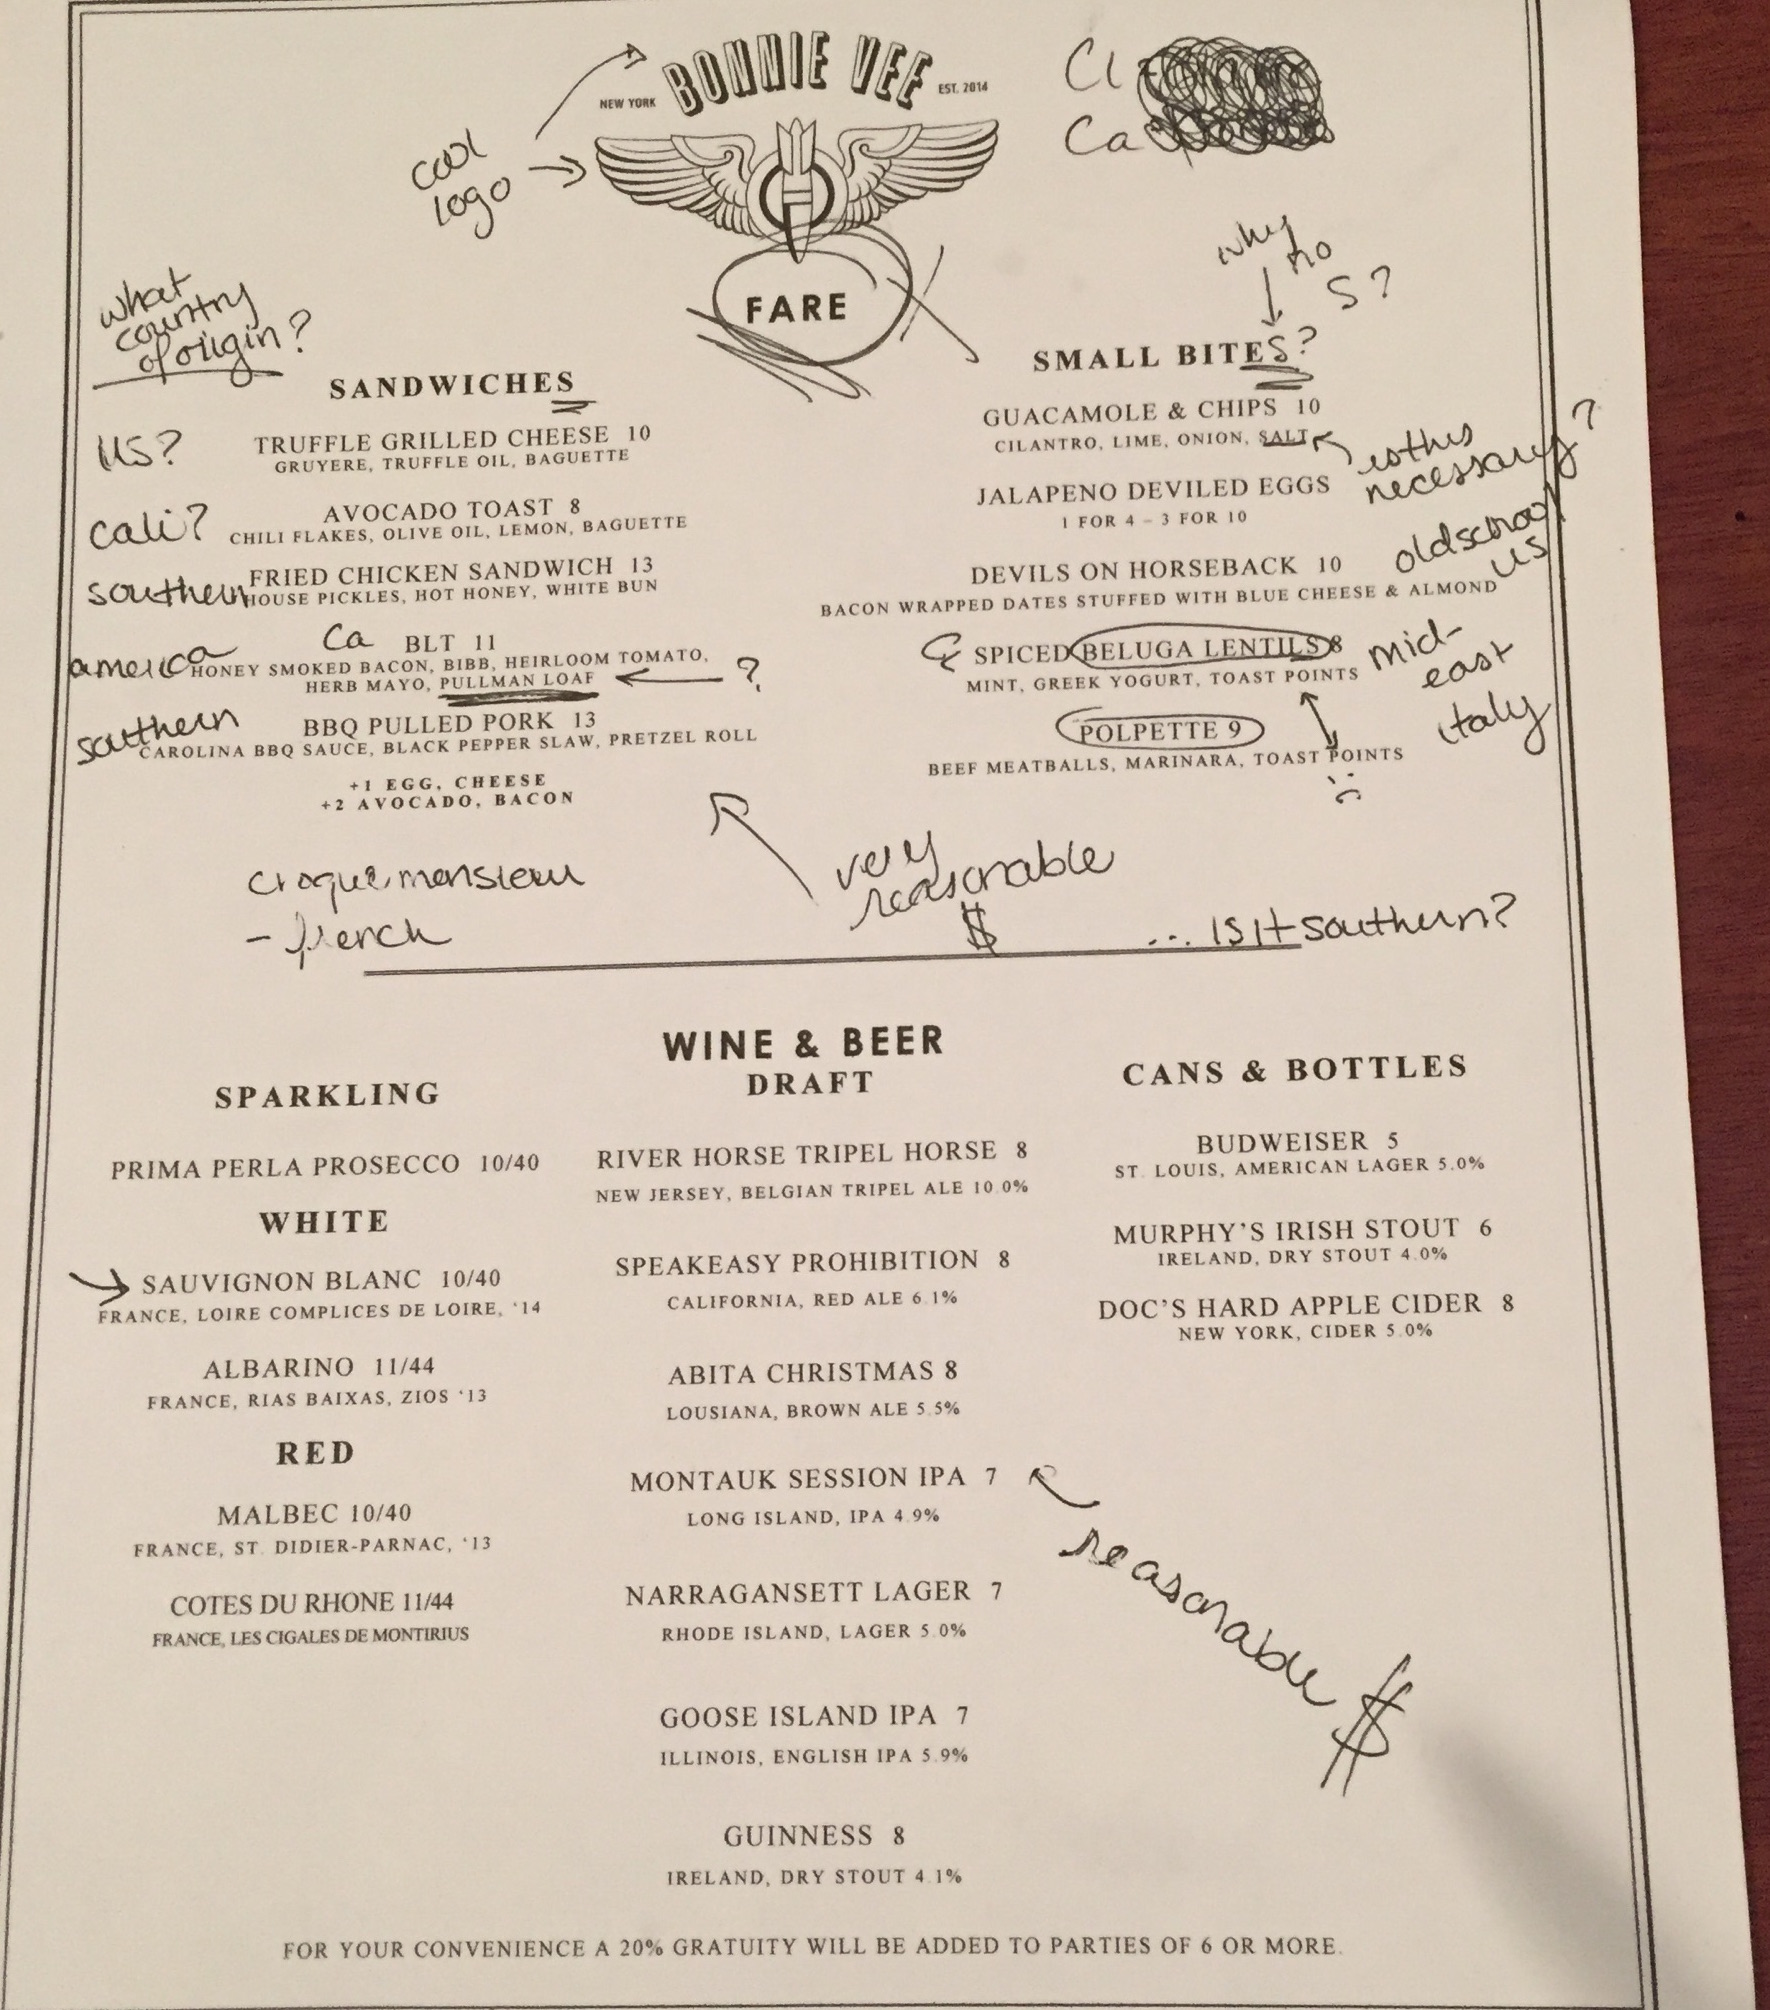 BONNIE VEE
NEW YORK
EST. 2014
cool
logo
FARE
why
no
S?
what
country
of origin?
SANDWICHES
US?
TRUFFLE GRILLED CHEESE 10
GRUYERE, TRUFFLE OIL, BAGUETTE
cali?
AVOCADO TOAST 8
CHILI FLAKES, OLIVE OIL, LEMON, BAGUETTE
southern
FRIED CHICKEN SANDWICH 13
HOUSE PICKLES, HOT HONEY, WHITE BUN
Ca
BLT 11
america
HONEY SMOKED BACON, BIBB, HEIRLOOM TOMATO,
HERB MAYO, PULLMAN LOAF
?
southern
BBQ PULLED PORK 13
CAROLINA BBQ SAUCE, BLACK PEPPER SLAW, PRETZEL ROLL
+1 EGG, CHEESE
+2 AVOCADO, BACON
croque monsieur
- french
SMALL BITES?
GUACAMOLE & CHIPS 10
CILANTRO, LIME, ONION, SALT
is this
necessary?
JALAPENO DEVILED EGGS
1 FOR 4 – 3 FOR 10
oldschool
US
DEVILS ON HORSEBACK 10
BACON WRAPPED DATES STUFFED WITH BLUE CHEESE & ALMOND
SPICED BELUGA LENTILS 8
MINT, GREEK YOGURT, TOAST POINTS
mid-
east
POLPETTE 9
BEEF MEATBALLS, MARINARA, TOAST POINTS
italy
very
reasonable
$
... is it southern?
WINE & BEER
SPARKLING
PRIMA PERLA PROSECCO 10/40
WHITE
SAUVIGNON BLANC 10/40
FRANCE, LOIRE COMPLICES DE LOIRE, '14
ALBARINO 11/44
FRANCE, RIAS BAIXAS, ZIOS '13
RED
MALBEC 10/40
FRANCE, ST. DIDIER-PARNAC, '13
COTES DU RHONE 11/44
FRANCE, LES CIGALES DE MONTIRIUS
DRAFT
RIVER HORSE TRIPEL HORSE 8
NEW JERSEY, BELGIAN TRIPEL ALE 10.0%
SPEAKEASY PROHIBITION 8
CALIFORNIA, RED ALE 6.1%
ABITA CHRISTMAS 8
LOUSIANA, BROWN ALE 5.5%
MONTAUK SESSION IPA 7
LONG ISLAND, IPA 4.9%
NARRAGANSETT LAGER 7
RHODE ISLAND, LAGER 5.0%
GOOSE ISLAND IPA 7
ILLINOIS, ENGLISH IPA 5.9%
GUINNESS 8
IRELAND, DRY STOUT 4.1%
CANS & BOTTLES
BUDWEISER 5
ST. LOUIS, AMERICAN LAGER 5.0%
MURPHY'S IRISH STOUT 6
IRELAND, DRY STOUT 4.0%
DOC'S HARD APPLE CIDER 8
NEW YORK, CIDER 5.0%
reasonable
$
FOR YOUR CONVENIENCE A 20% GRATUITY WILL BE ADDED TO PARTIES OF 6 OR MORE.